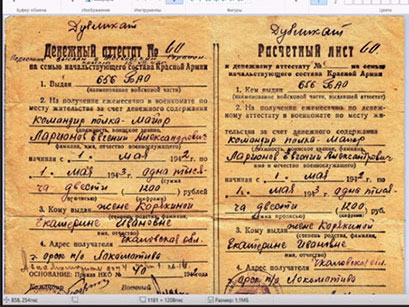 Буфер обмена
Изображение
Инструменты
Фигуры
Дубликат
Денежный аттестат № 60
на семью начальствующего состава Красной Армии
1. Выдан 656 БАО
(наименование войсковой части)
2. На получение ежемесячно в военкомате по
месту жительства за счет денежного содержания
командир полка-майор
(должность, воинское звание,
Ларионов Евгений Александрович
фамилия, имя, отчество военнослужащего)
начиная с 1. мая 1942 г. по
1. мая 1943 г. одна тыся-
(сумма
ча двести (1200) рублей
прописью)
3. Кому выдан жене Корякиной
(степень родства, фамилия,
Екатерине Ивановне
имя, отчество)
4. Адрес получателя Чкаловская обл.
г. Орск п/я Локомотива
ОСНОВАНИЕ: Приказ НКО №
Командир
Военный
Дубликат
Расчетный лист 60
к денежному аттестату №
на семью
начальствующего состава Красной Армии
1. Кем выдан 656 БАО
(наименование войсковой части, выдавшей аттестат)
2. На получение ежемесячно по денежно-
му аттестату в военкомате по месту жи-
тельства за счет денежного содержания
командир полка-майор
(должность, воинское звание,
Ларионов Евгений Александрович
фамилия, имя, отчество военнослужащего)
начиная с 1. мая 1942 г. по
1. мая 1943 г. одна тыся-
ча двести (1200) руб.
3. Кому выдан жене Корякиной
(степень родства, фамилия,
Екатерине Ивановне
имя, отчество)
4. Адрес получателя Чкаловская обл.
г. Орск п/я Локомотива
858, 254пкс
1181 × 1208пкс
Размер: 1,1МБ